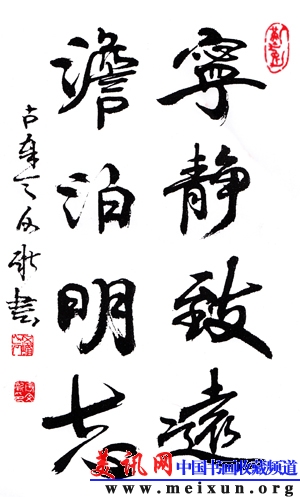 寧静致遠
澹泊明志
書
美讯网
中国书画收藏频道
www.meixun.org